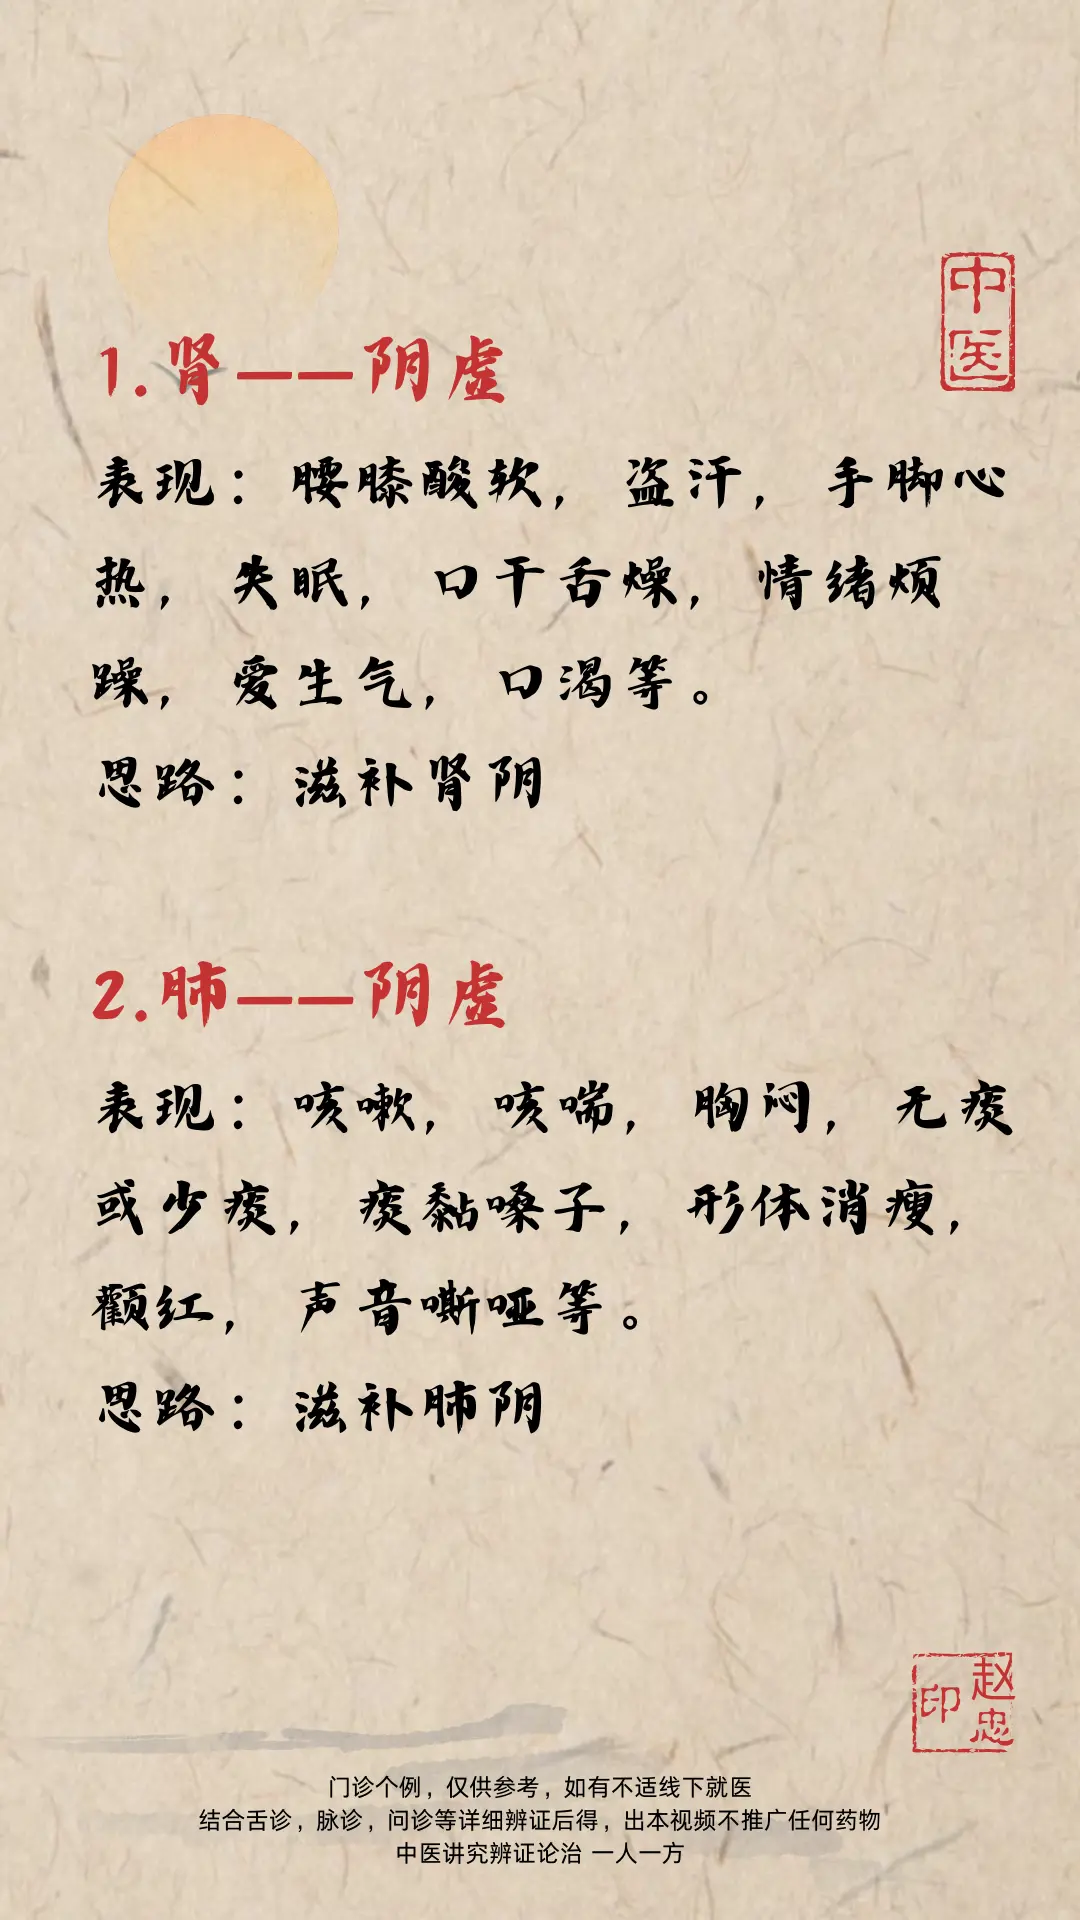 中医
1.肾——阴虚
表现：腰膝酸软，盗汗，手脚心
热，失眠，口干舌燥，情绪烦
躁，爱生气，口渴等。
思路：滋补肾阴
2.肺——阴虚
表现：咳嗽，咳喘，胸闷，无痰
或少痰，痰黏嗓子，形体消瘦，
颧红，声音嘶哑等。
思路：滋补肺阴
赵忠印
门诊个例，仅供参考，如有不适线下就医
结合舌诊，脉诊，问诊等详细辨证后得，出本视频不推广任何药物
中医讲究辨证论治 一人一方